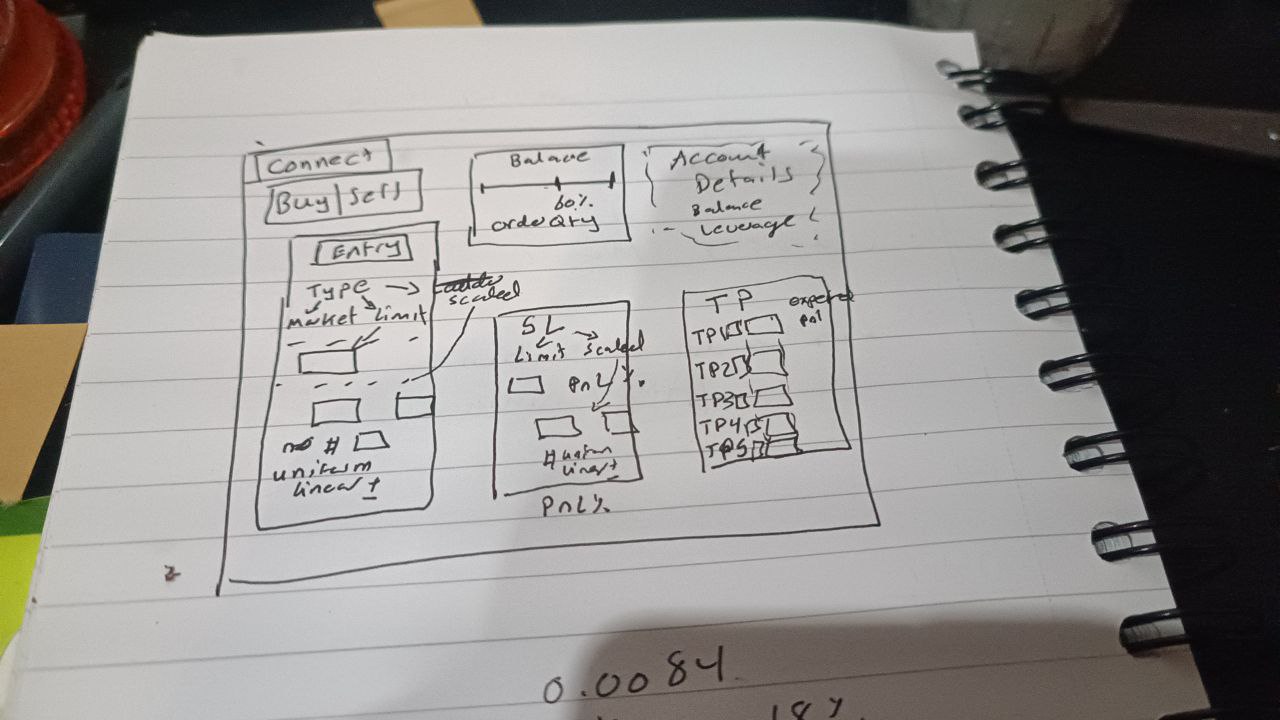 Connect
Buy | Sell
Balance
60%
order Qty
Account
Details
Balance
Leverage
Entry
Type
scaled
market Limit
no #
uniform
linear ±
SL
Limit scaled
PnL %.
#
linear ±
PnL%
TP
expected
pnl
TP1
TP2
TP3
TP4
TP5
0.0084
18%